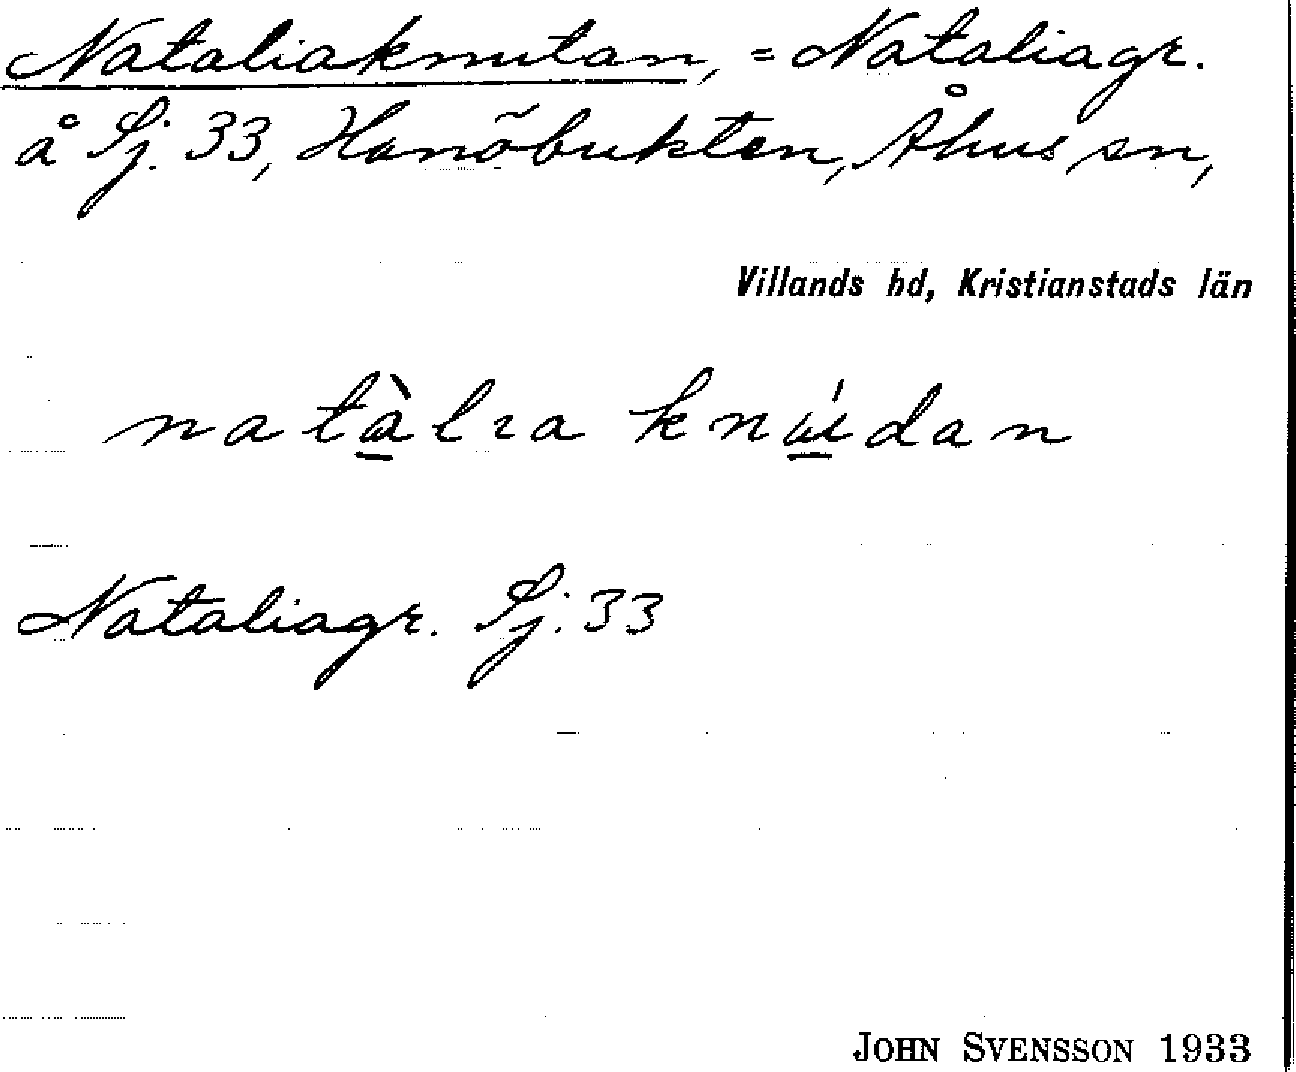 Nataliaknutan, = Nataliagr.
å Sj. 33, Hanöbukten, Åhus sn,
Villands hd, Kristianstads län
natàlɩa knúdan
Nataliagr. Sj. 33
JOHN SVENSSON 1933